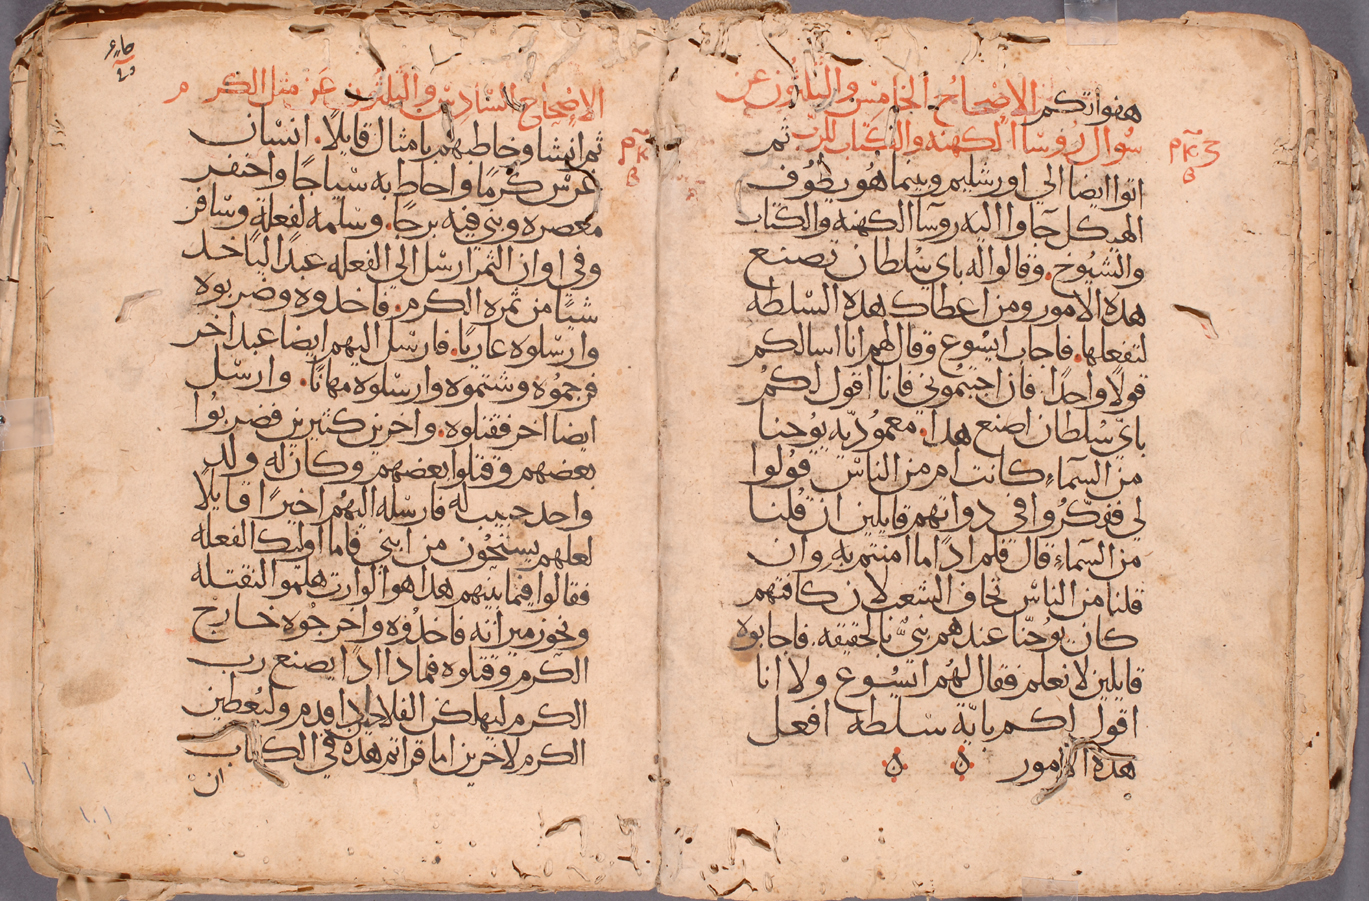 هفواتكم الاصحاح الخامس والثلاثون عن
سوال روسا الكهنه والكتاب للرب ثم
ⲣⲕⲍ
ⲃ
اتوا ايضا الي اورشليم وبينما هو يطوف
الهيكل جاوا اليه روسا الكهنه والكتاب
والشيوخ. وقالوا له باي سلطان تصنع
هذه الامور ومن اعطاك هذه السلطه
لتفعلها. فاجاب ايسوع وقال لهم انا اسالكم
قولا واحدا. فان اجبتموني فانا اقول لكم
باي سلطان اصنع هدا. معموديه يوحنا
من السماء كانت ام من الناس قولوا
لي ففكروا في دواتهم قايلين ان قلنا
من السماء. قال فلم ادا ما امنتم به وان
قلنا من الناس نخاف الشعب لان كافتهم
كان يوحنا عندهم نبي بالحقيقه. فاجابوه
قايلين لا نعلم فقال لهم ايسوع ولا انا
اقول لكم بايه سلطه افعل
هده الامور ⁘ ن ⁘ ن
الاصحاح السادس والثلاثون عن مثل الكرم
ثم انشا وخاطبهم بامثال قايلا. انسان
ⲣⲕ
ⲃ
غرس كرما واحاط به سياجا واحتفر
معصره وبني فيه برجا. وسلمه لفعله وسافر
وفي اوان الثمر ارسل الي الفعله عبدا لياخد
شيا من ثمره الكرم. فاخدوه وضربوه
وارسلوه عاريا. فارسل اليهم ايضا عبد اخر
فرجموه وشتموه وارسلوه مهانا. وارسل
ايضا اخر فقتلوه. واخرين كثيرين فضربوا
بعضهم وقتلوا بعضهم وكان له ولد
واحد حبيب له فارسله اليهم اخيرا قايلا
لعلهم يستحون من ابني فاما اوليك الفعله
فقالوا فيما بينهم هدا هو الوارث هلموا لنقتله
ونحوز ميراثه فاخدوه واخرجوه خارج
الكرم وقتلوه فمادا ادا يصنع رب
الكرم ليهلكن الفلاحين اقدم وليعطين
الكرم لاخرين اما قراتم هده في الكتاب
ان
١٠١